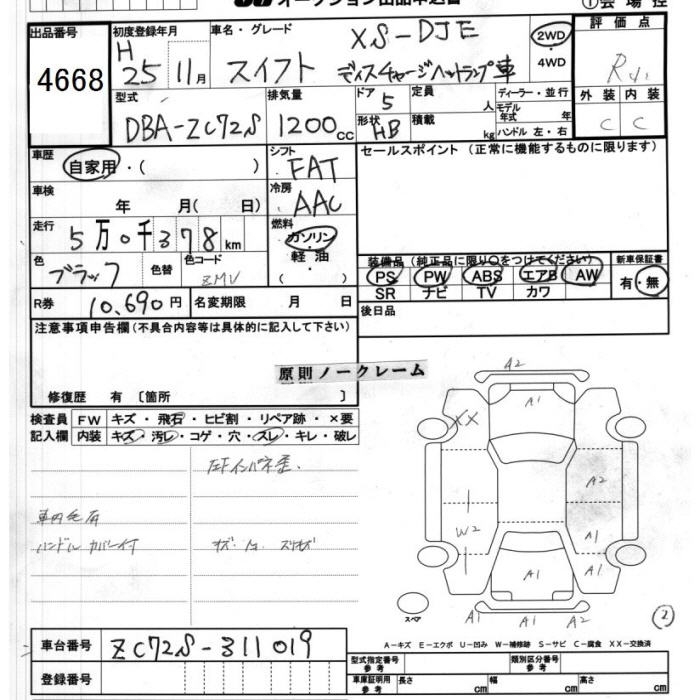 ①会場控
出品番号
4668
初度登録年月
H
25 11月
車名・グレード
XS-DJE
スイフト ディスチャージヘットランプ車
2WD
・
4WD
評価点
R
外装 内装
C C
型式
DBA-ZC72S
排気量
1200cc
ドア
5
形状
HB
定員
人
積載
kg
ディーラー・並行
モデル
年式 年
ハンドル 左・右
車歴
自家用・( )
シフト
FAT
セールスポイント (正常に機能するものに限ります)
車検
年 月( 日)
冷房
AAC
走行
5万0千378km
燃料
ガソリン
・
軽油
( )
色
ブラック
色替
色コード
ZMV
装備品 (純正品に限り○をつけてください)
PS PW ABS エアB AW
SR ナビ TV カワ
新車保証書
有・無
R券
10,690円
名変期限 月 日
後日品
注意事項申告欄(不具合内容等は具体的に記入して下さい)
原則ノークレーム
修復歴 有 〔箇所 〕
検査員
記入欄
FW キズ・飛石・ヒビ割・リペア跡・×要
内装 キズ・汚レ・コゲ・穴・スレ・キレ・破レ
車内毛有
ハンドルカバー付
A2
A1
XX
A2
W2
A1
A1
A1
A1
A2
スペア
②
車台番号
ZC72S-311019
A-キズ E-エクボ U-凹み W-補修跡 S-サビ C-腐食 XX-交換済
登録番号
型式指定番号
参考
類別区分番号
参考
車庫証明用
参考
長さ cm 幅 cm 高さ cm